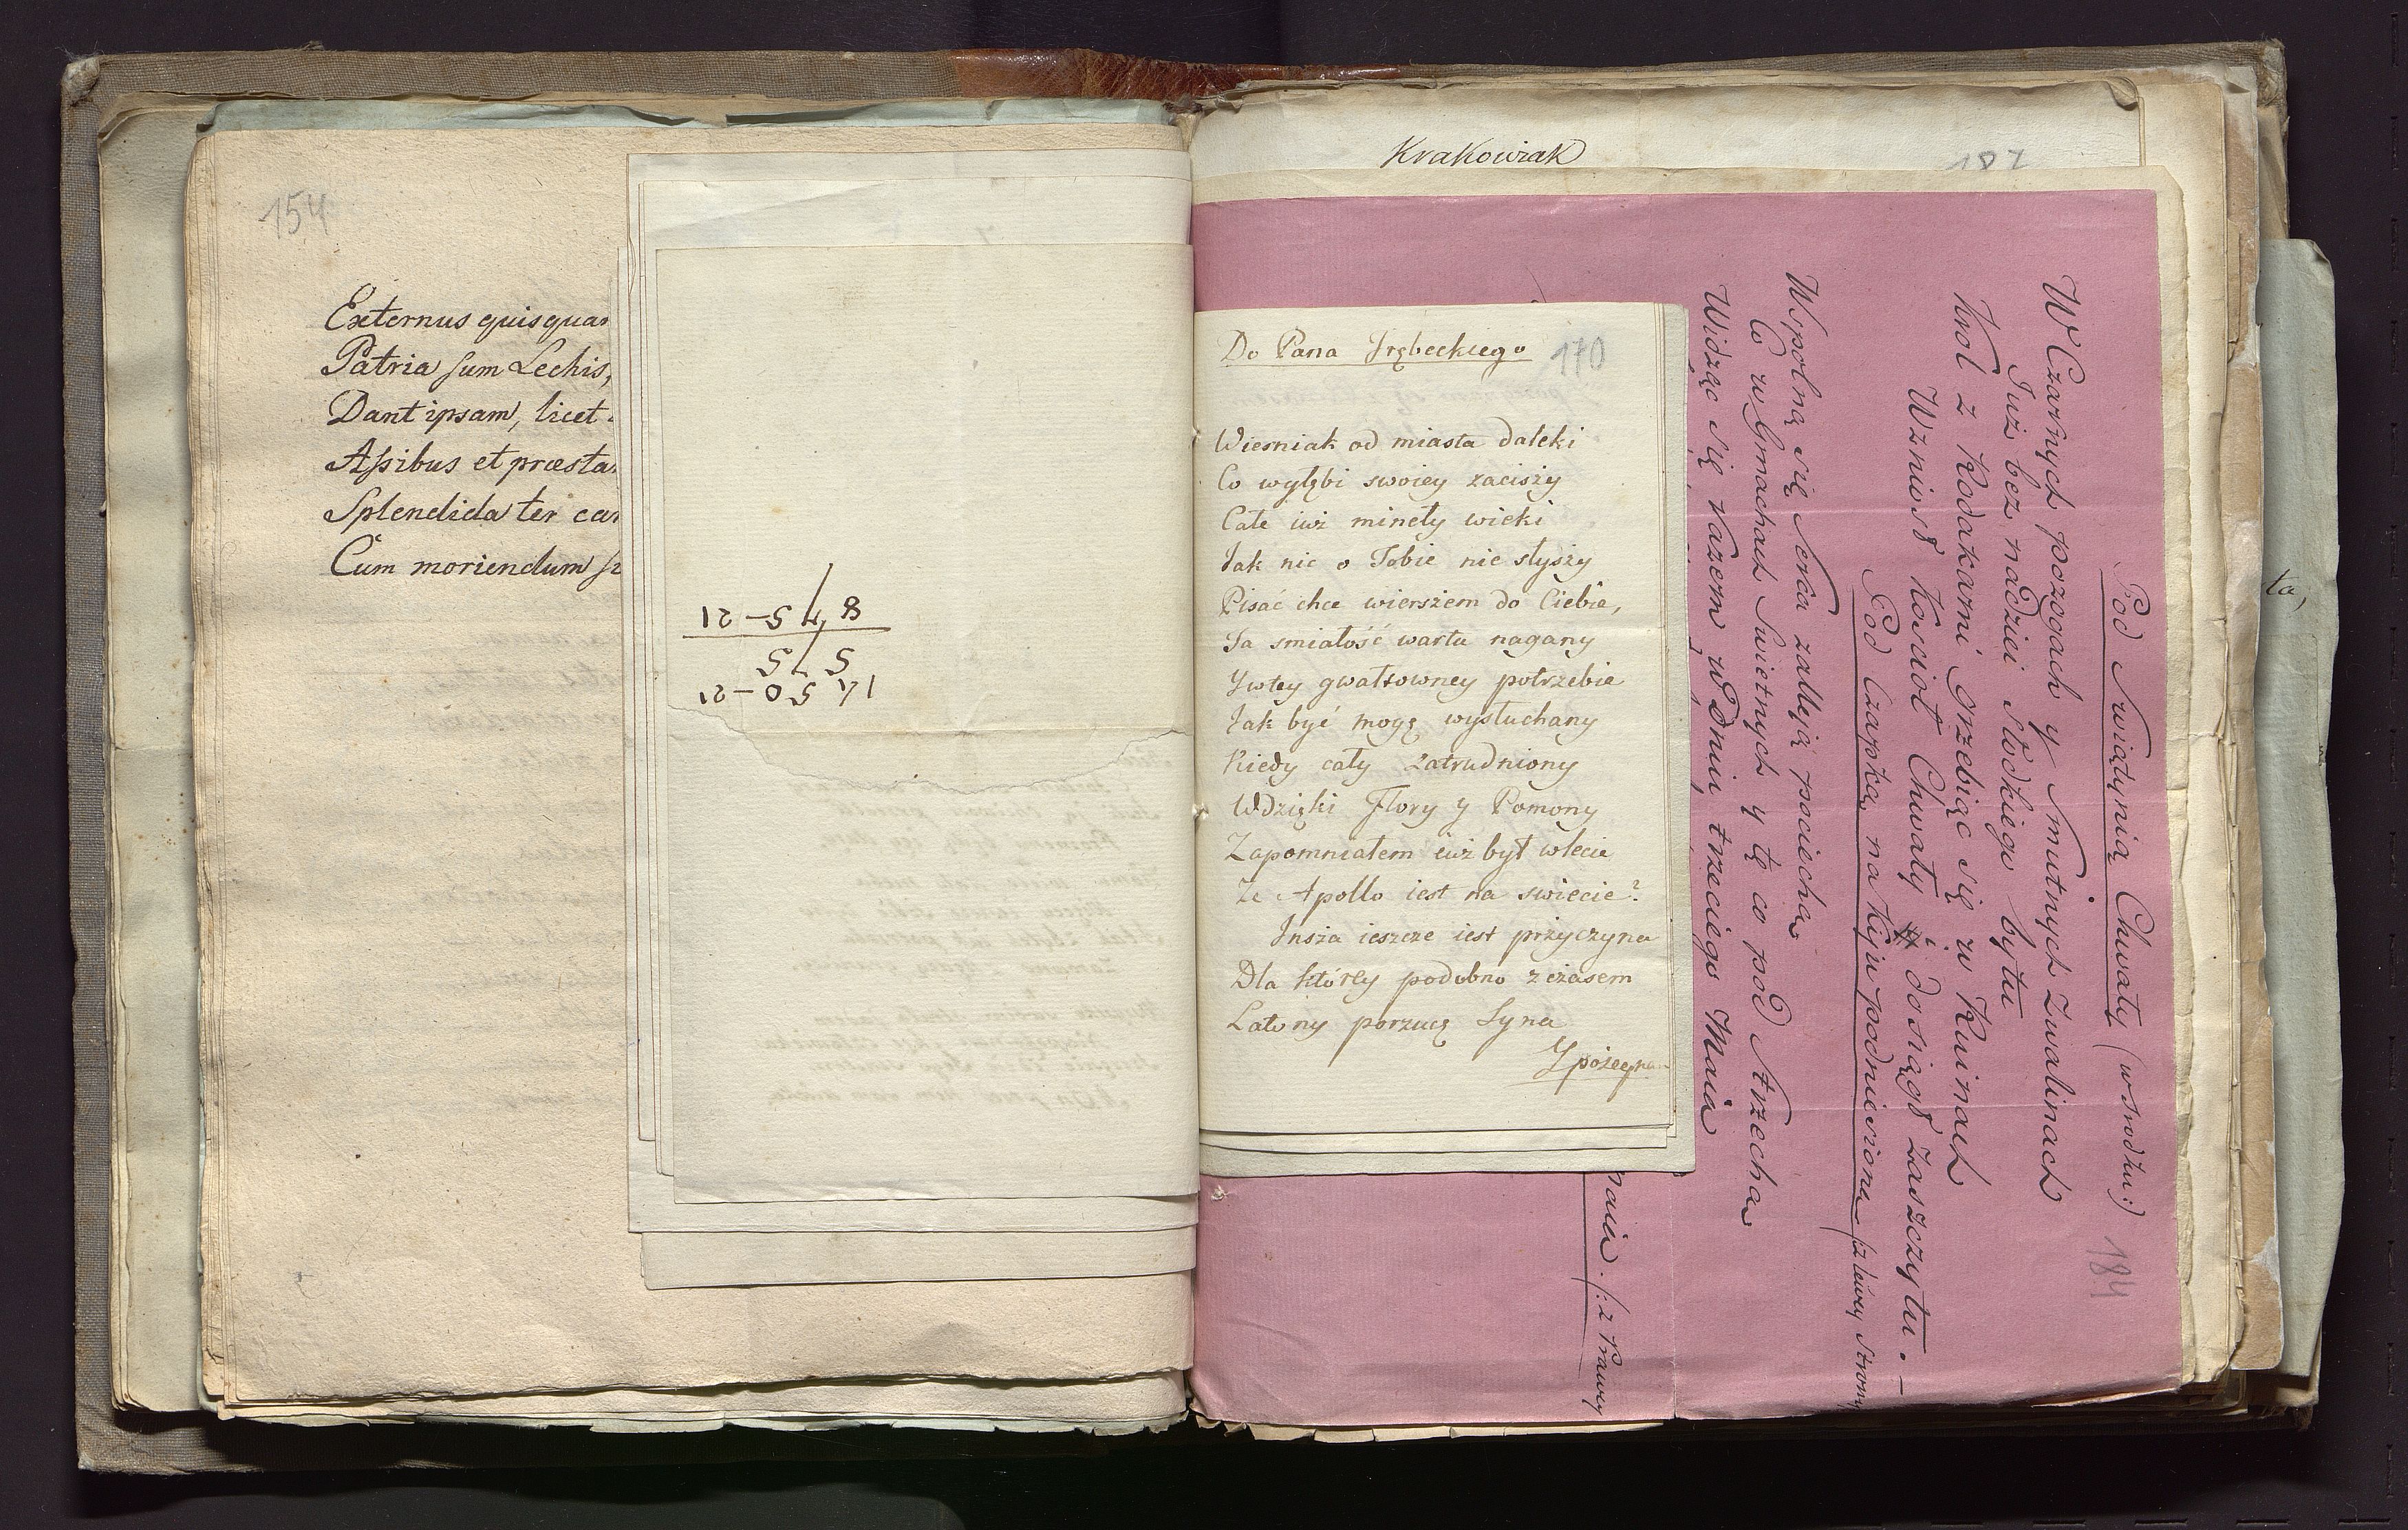 154
Externus quisquam
Patria sum Lechis,
Dant ipsam, licet
Assibus et præsta
Splendida ter car
Cum moriendum s
8 75-21
5 5
14 50-21
Krakowiak
187
Do Pana Trębeckiego
170
Wiesniak od miasta daleki
Co wgłębi swoiey zaciszy
Całe iuż mineły wieki
Jak nic o Tobie nie słyszy
Pisać chce wierszem do Ciebie,
Ta smiałość warta nagany
Y wtey gwałtowney potrzebie
Jak być mogę wysłuchany
Kiedy cały zatrudniony
Wdzięki Flory y Pomony
Zapomniałem iuż był wlecie
Że Apollo iest na swiecie?
Insza ieszcze iest przyczyna
Dla którey podobno z czasem
Latony porzucę Syna
Y pożegna
Pod Swiątynią Chwały (w srodku:)
184
W Czarnych pozogach y smutnych Zwalinach
Już bez nadziei słodkiego bytu
Krol z Rodakami grzebiąc się w Ruinach
Wzniosł Kościoł Chwały i dosiągł zaszczytu.-
Pod Czapką na Kiju podniesioną (z lewey Strony
Wspolną się Serca zaleją pociechą
Co w Gmachach Swietnych y tę co pod Strzechą
Widząc się razem w Dniu trzeciego Maia
(: z Prawey
ta,